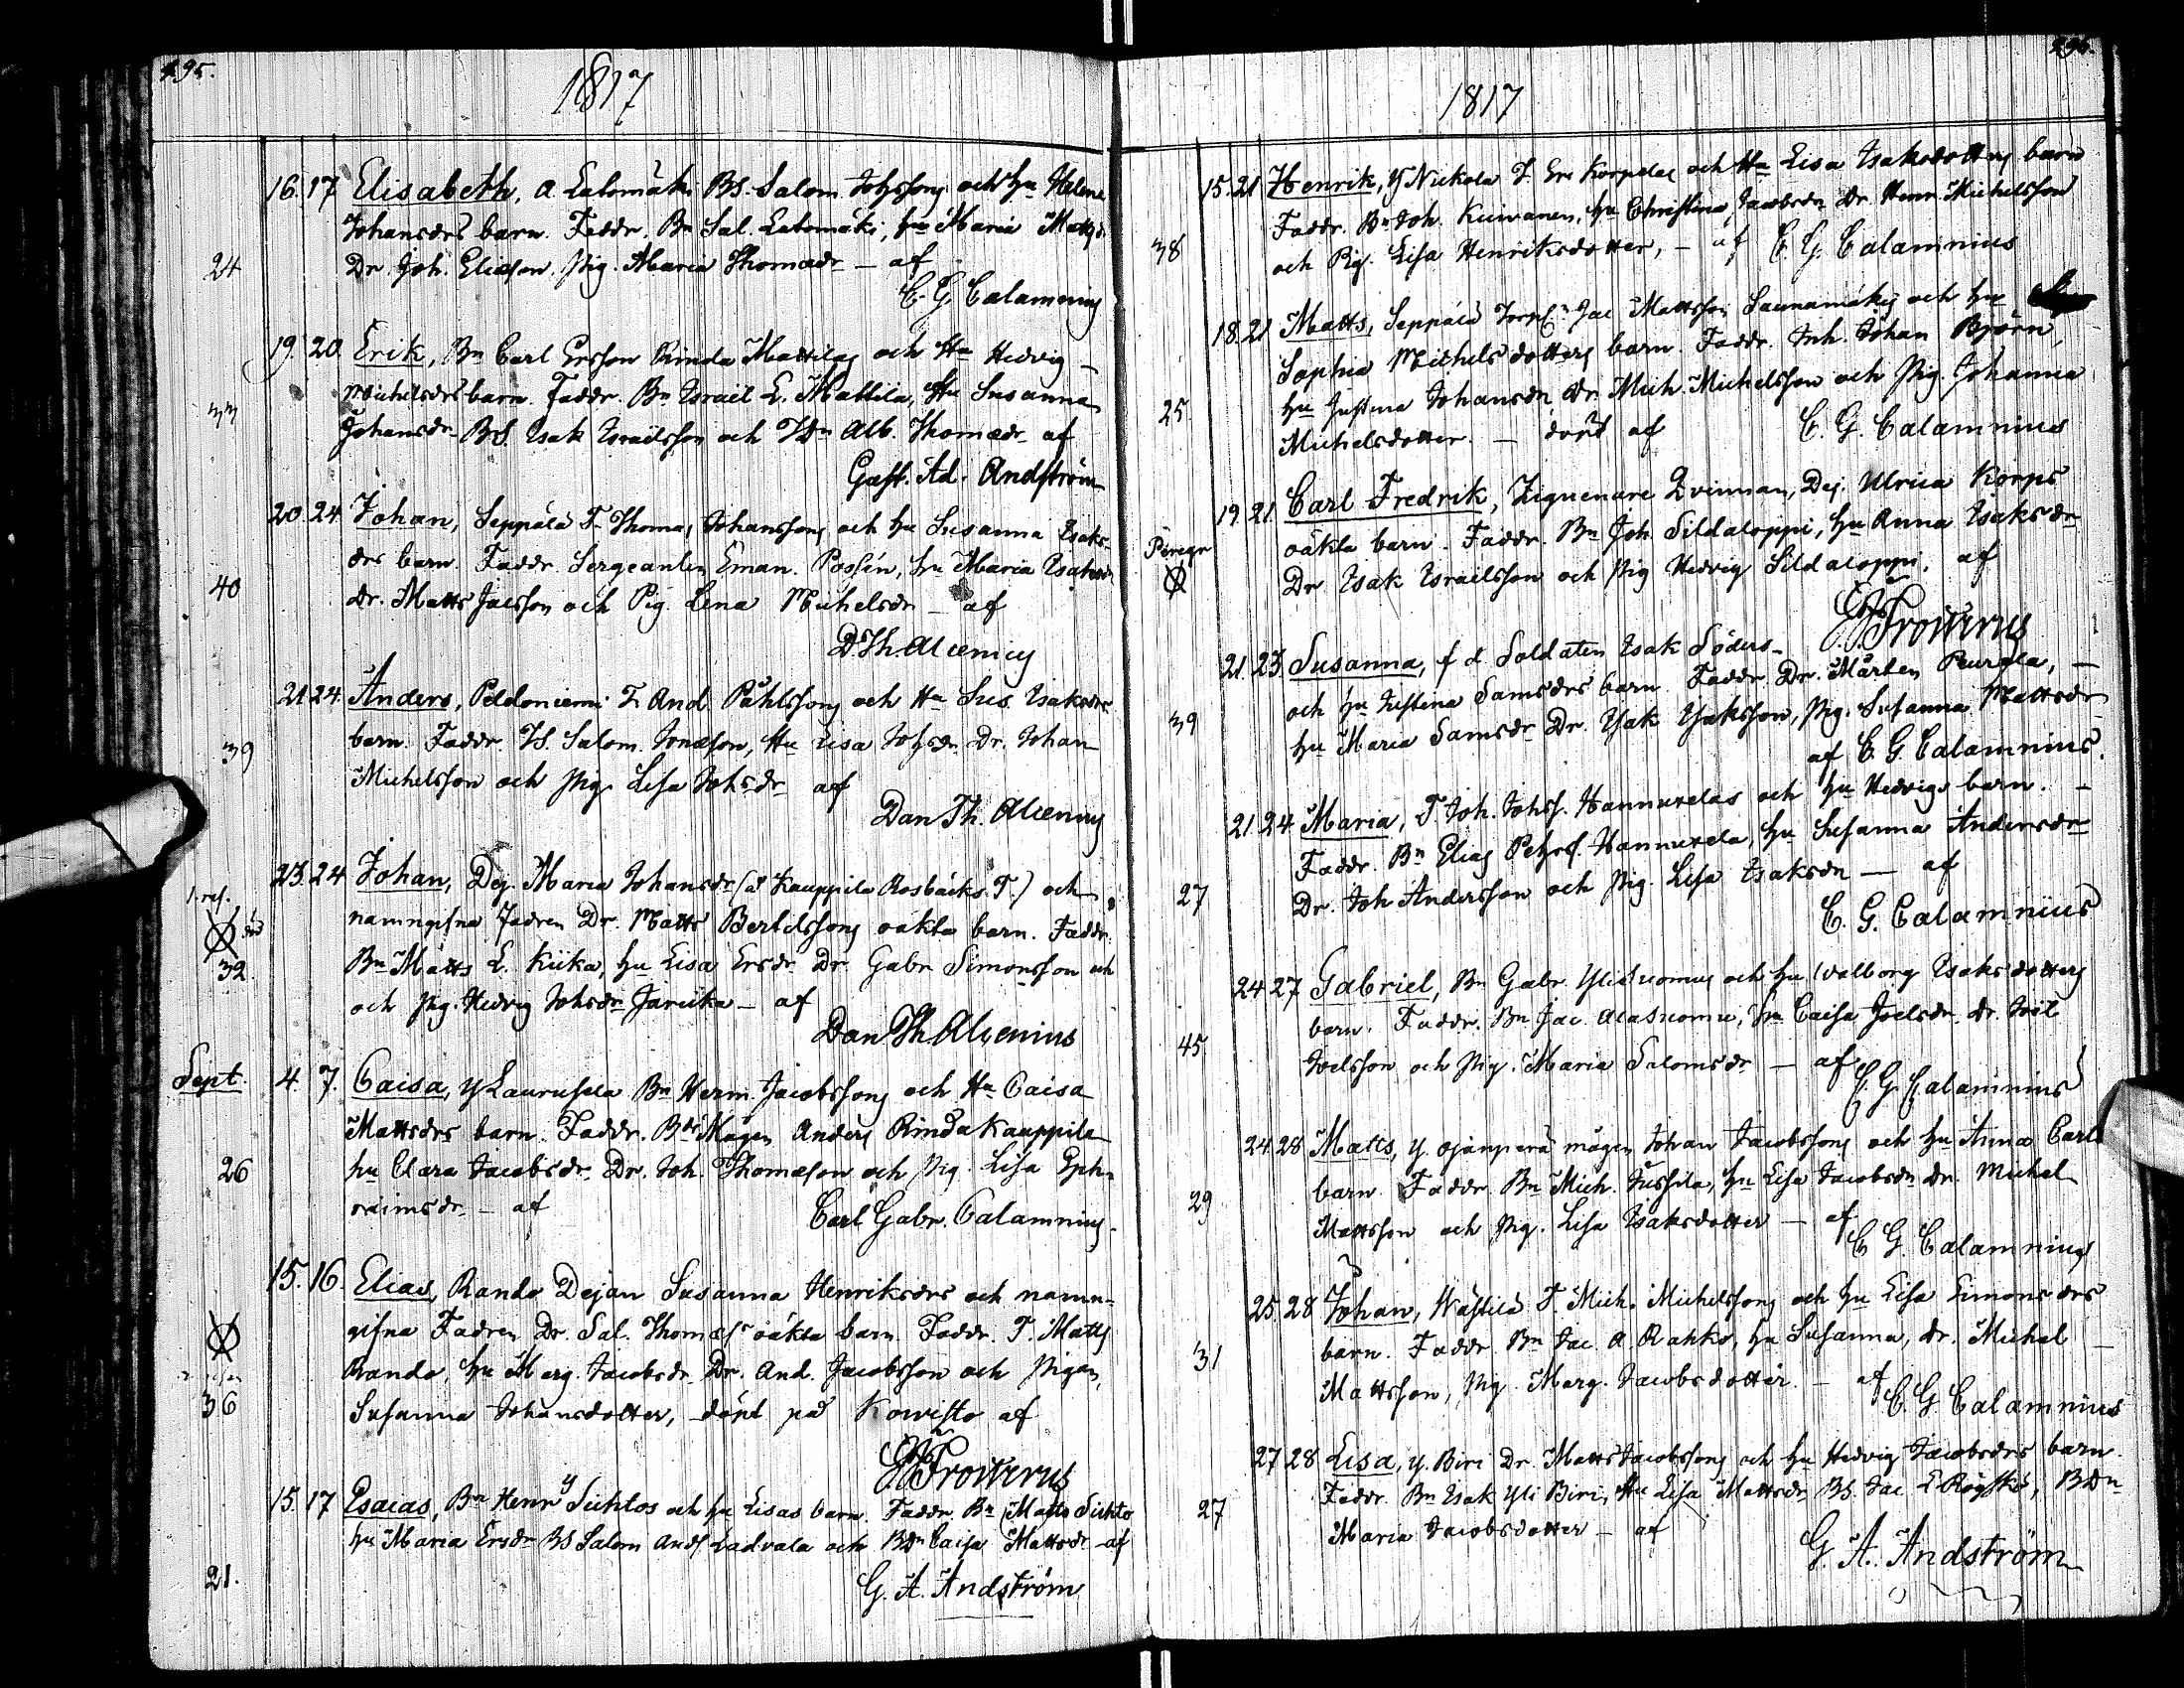 495.
1817
16. 17 Elisabeth, a. Latomäki BS. Salom. Johssons och Hu Helena
Johansdrs barn. Faddr. Bn Sal. Latomäki, hu Maria Mattsdr
24 Dr. Joh. Eliæson. Pig. Maria Thomædr — af
C. G. Calamnius
19. 20. Erik, Bn Carl Ersson Rinda Mattilas och Hu Hedvig
Michelsdrs barn. Faddr. Bn Israel L. Mattila, Hu Susanna
33 Johansdr. BS. Isak Israilsson och TDn Alb. Thomædr af
Gust. Ad. Andström
20. 24. Johan, Seppälä T. Thomas Johanssons och hu Susanna Isaks-
drs barn. Faddr. Sergeanten Eman. Possén, hu Maria Isaksdr
40 Dr. Matts Jacsson och Pig. Lena Michelsdr — af
D. Th. Alcenius
21. 24. Anders, Peldoniemi T. And. Påhlssons och Hu Sus. Isaksdrs
barn. Faddr. TS. Salom. Jonæson, Hu Lisa Johsdr. Dr. Johan
39 Michelsson och Pig. Lisa Johsdr af
Dan Th. Alcenius
23. 24 Johan, Dej. Maria Johansdr (å Kauppila Rosbäcks T.) och
namngifna Fadren Dr. Matts Bertilssons oäkta barn. Faddr.
32. Bn Matts L. Kiika, hu Lisa Ersdr. Dr. Gabr. Simonsson och
och Pig. Hedvig Johsdr Jariika — af
Dan Th. Alcenius
Sept. 4. 7. Caisa, Y Laurusela Bn Herm. Jacobssons och Hu Caisa
Mattsdrs barn. Faddr. Bde Mågen Anders Rinda Kauppila
26 hu Clara Jacobsdr. Dr. Joh. Thomæson och Pig. Lisa Eph-
raimsdr — af
Carl Gabr. Calamnius.
15. 16. Elias, Rando Dejan Susanna Henriksdrs och namn-
gifna Fadren Dr. Sal. Thomæs oäkta barn. Faddr. T. Matts
Rando, hu Marg. Jacobsdr. Dr. And. Jacobsson och Pigan
36 Susanna Johansdotter, döpt på Kowisto af
E. J. Frosterus
15. 17 Esaias, Bn Henr Y Sichtos och hu Lisas barn. Faddr. Bn Matts Sichto
hu Maria Ersdr BS Salom And Ladvala och BDn Caisa Mattsdr — af
21. G. A. Andström
496.
1817
15. 21 Henrik, Y Nickola T. Er. Korpelas och Hu Lisa Isaksdotters barn
Faddr. Bn Joh. Kuivanen, hu Christina Jacobsdr. Dr. Henr. Michelsson
38 och Pig. Lisa Henriksdotter, — af C. G. Calamnius
18. 21 Matts, Seppälä Torp. Jac Mattsson Saunamäkis och hu
Sophia Michelsdotters barn. Faddr. Inh. Johan Björn,
25. hu Justina Johansdr Dr. Mich. Michelsson och Pig. Johanna
Michelsdotter. — döpt af C. G. Calamnius
19. 21 Carl Fredrik, Ziguenare Qvinnan, Dej. Ulrica Korps
Peregr oäkta barn. Faddr. Bn Joh. Sildaloppi, hu Anna Isaksdr
Dr Isak Israilsson och Pig Hedvig Sildaloppi. af
E. J. Frosterus
21. 23 Susanna, f d Soldaten Isak Söders
och hu Justina Samsdrs barn. Faddr. Dr. Mårten Peurala, —
39 hu Maria Samsdr. Dr. Isak Isaksson, Pig. Susanna Mattsdr
af C. G. Calamnius.
21 24 Maria, T. Joh. Johss. Hannuxelas och hu Hedvigs barn. —
Faddr. Bn Elias Petrss. Hannuxela, hu Susanna Andersdr
27 Dr. Joh Andersson och Pig. Lisa Isaksdr — af
C. G. Calamnius
24 27 Gabriel, Bn Gabr. Ylisuomus och hu Walborg Isaksdotters
barn. Faddr. Bn Jac. Alasuomu, hu Caisa Joelsdr. Dr. Joël
45 Joelsson och Pig. Maria Salomsdr — af
C. G. Calamnius
24. 28 Matts, Y. Ojanperä mågen Johan Jacobssons och hu Anna Carls
barn. Faddr. Bn Mich. Jussila, hu Lisa Jacobsdr. Dr. Michel
29 Mattsson och Pig. Lisa Isaksdotter — af
C. G. Calamnius
25. 28 Johan, Wästilä T. Mich. Michelssons och hu Lisa Simonsdrs
barn. Faddr. Bn Jac. A. Rahko, hu Susanna, Dr. Michel —
31 Mattsson, Pig. Marg. Jacobsdotter. — af
C. G. Calamnius
27 28 Lisa, y. Biri Dr. Matts Jacobssons och hu Hedvig Jacobsdrs barn
Faddr. Bn Isak Yli Biri, Hu Lisa Mattsdr. BS. Jac. L Röyskö, BDn
27 Maria Jacobsdotter — af
G. A. Andström